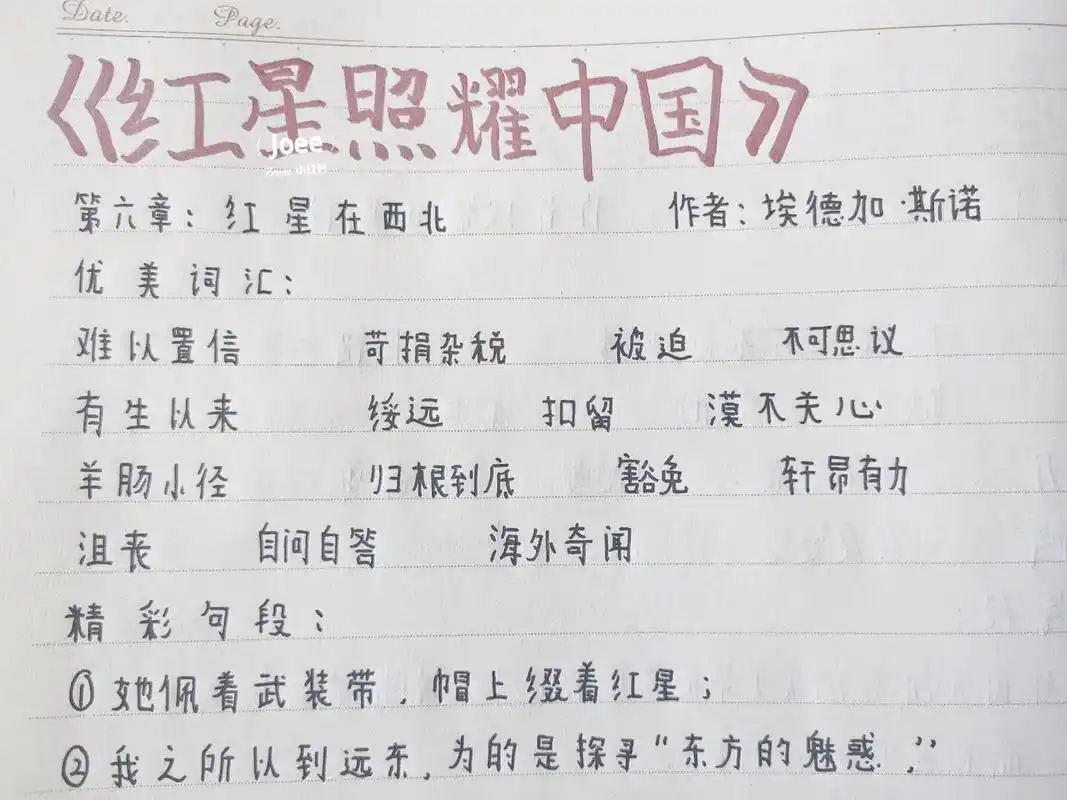 Date. Page.
《红星照耀中国》
Joee
小红书
第六章：红星在西北 作者：埃德加·斯诺
优美词汇：
难以置信 苛捐杂税 被迫 不可思议
有生以来 绥远 扣留 漠不关心
羊肠小径 归根到底 豁免 轩昂有力
沮丧 自问自答 海外奇闻
精彩句段：
①她佩着武装带，帽上缀着红星；
②我之所以到远东，为的是探寻“东方的魅惑，”